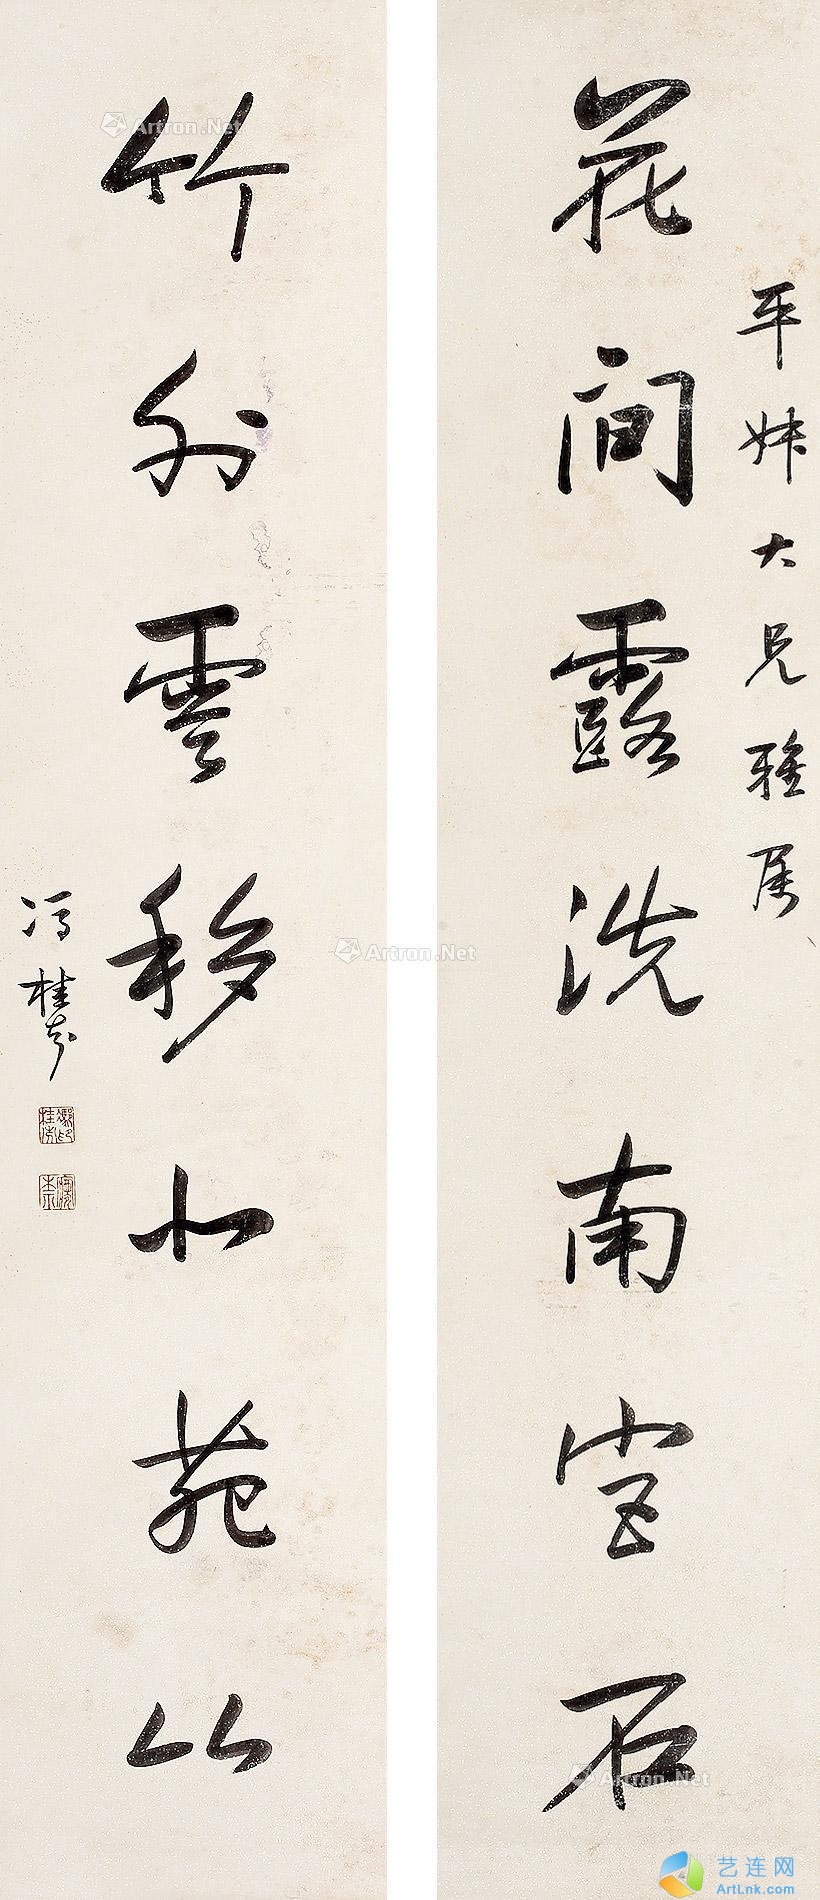 平妹大兄雅属
花間露洗南堂石
竹外雲移北苑山
馮桂芬
馮印桂芬
Artron.Net
Artron.Net
Artron.Net
艺连网
ArtLnk.com